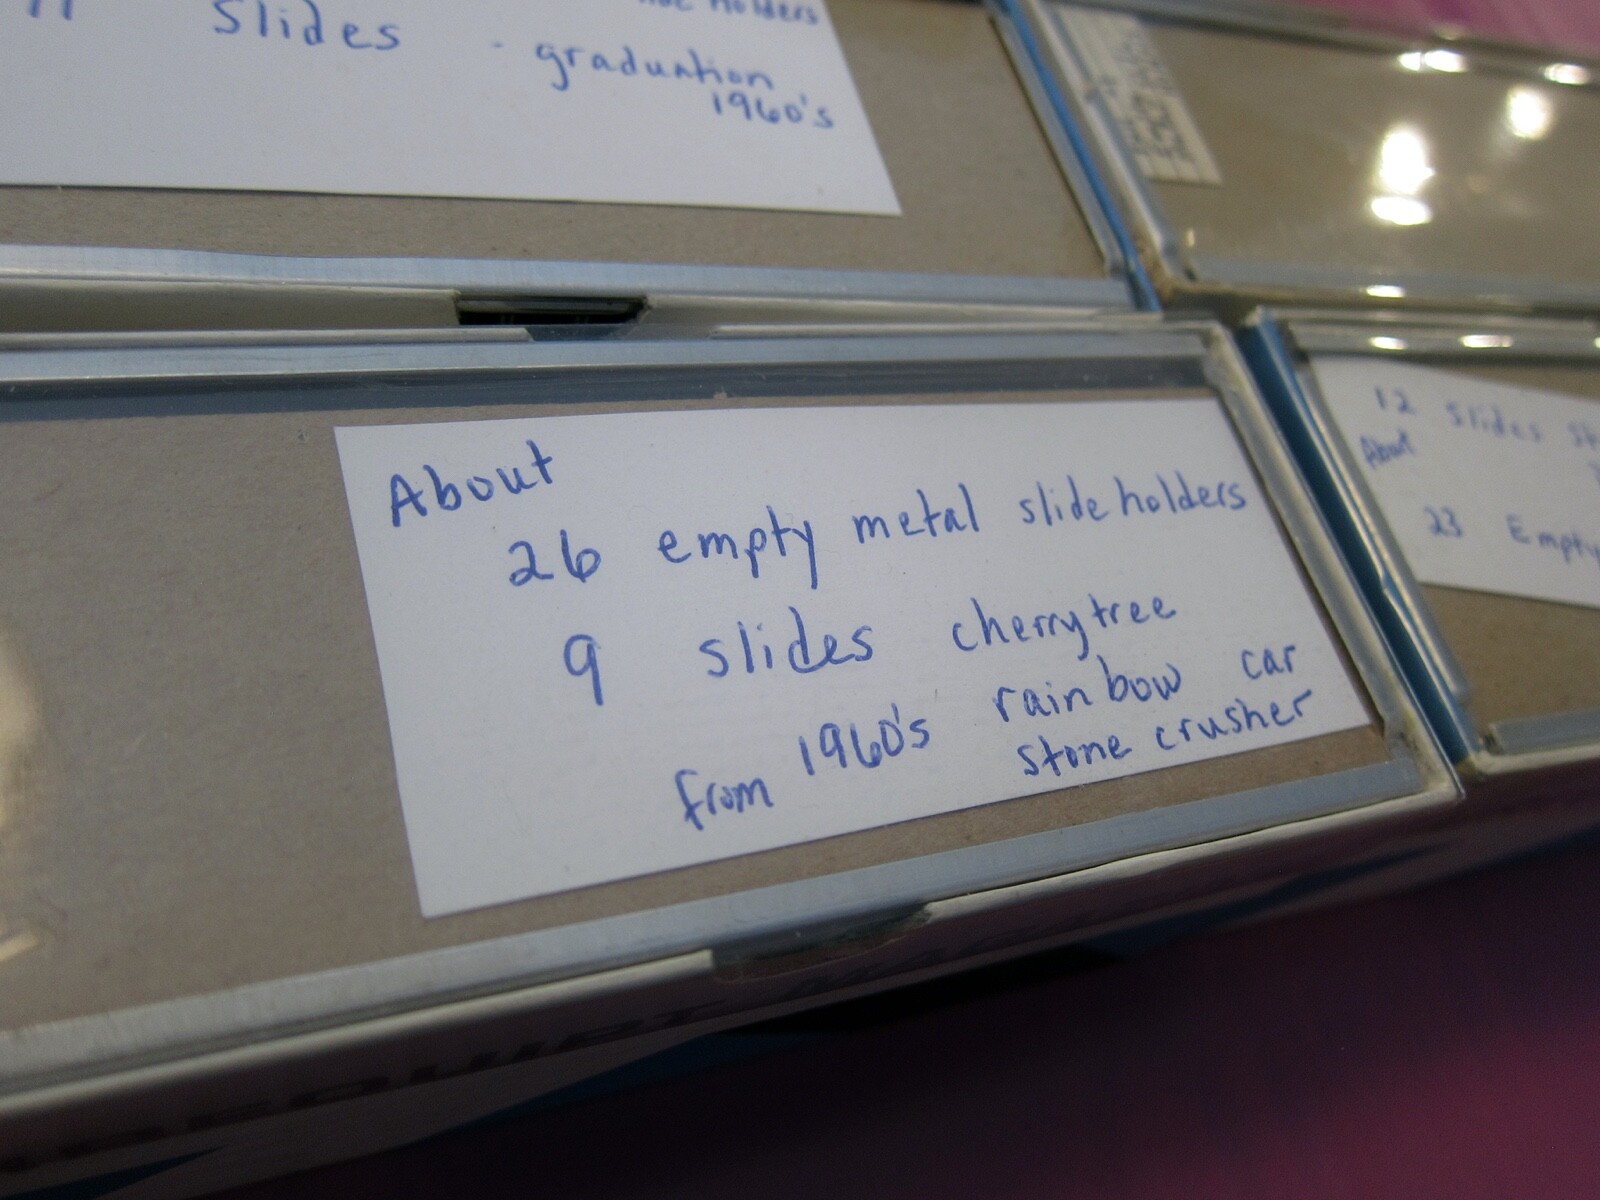 11 Slides - graduation
1960's
About
26 empty metal slide holders
9 slides cherry tree
from 1960's rainbow car
stone crusher
12 Slides
About
23 Empty